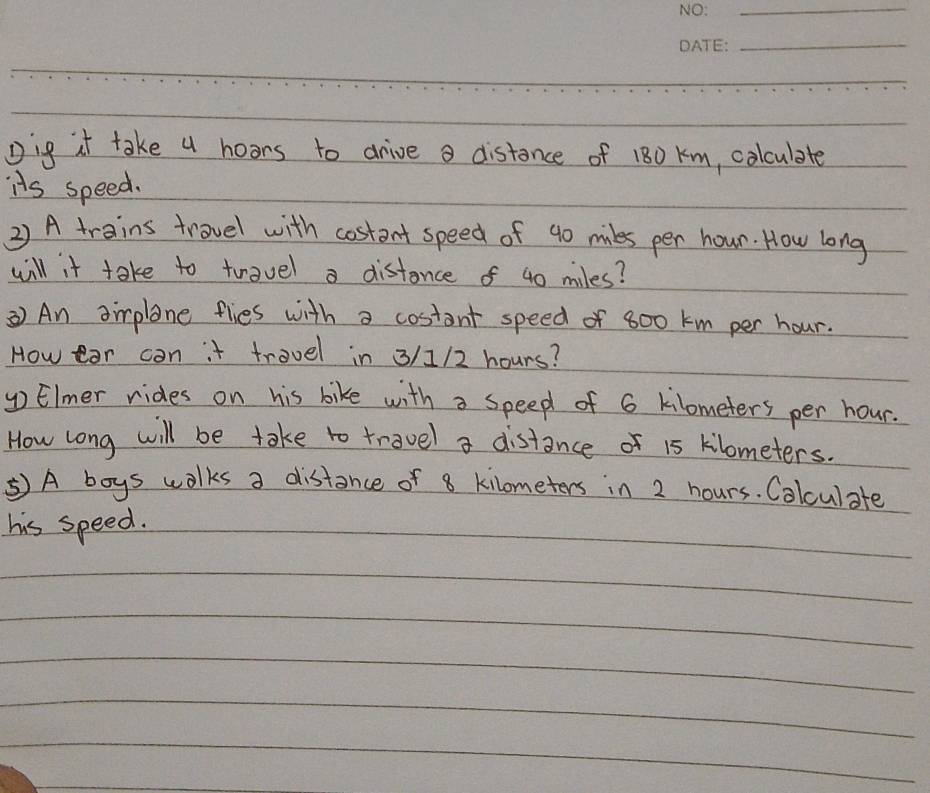 NO:
DATE:
1) if it take 4 hoars to drive a distance of 180 km, calculate
its speed.
2) A trains travel with costant speed of 40 miles per hour. How long
will it take to travel a distance of 40 miles?
3) An airplane flies with a costant speed of 800 km per hour.
How far can it travel in 3/1/2 hours?
4) Elmer rides on his bike with a speed of 6 kilometers per hour.
How long will be take to travel a distance of 15 kilometers.
5) A boys walks a distance of 8 kilometers in 2 hours. Calculate
his speed.